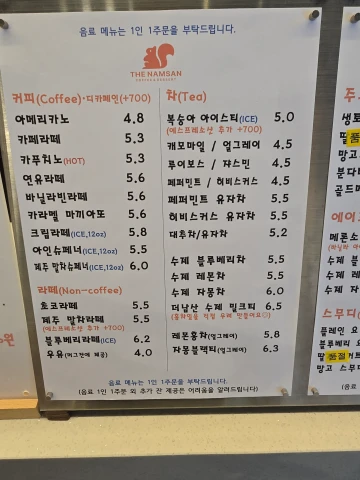 음료 메뉴는 1인 1주문을 부탁드립니다.
THE NAMSAN
커피(Coffee)·디카페인(+700)
아메리카노 4.8
카페라떼 5.3
카푸치노(HOT) 5.3
연유라떼 5.6
바닐라빈라떼 5.6
카라멜 마끼아또 5.6
크림라떼(ICE,12oz) 5.8
아인슈페너(ICE,12oz) 5.5
제주 말차슈페너(ICE,12oz) 6.0
라떼(Non-coffee)
초코라떼 5.5
제주 말차라떼 5.5
(에스프레소샷 추가 +700)
블루베리라떼(ICE) 6.2
우유(머그잔에 제공) 4.0
차(Tea)
복숭아 아이스티(ICE) 5.0
(에스프레소샷 추가 +700)
캐모마일 / 얼그레이 4.5
루이보스 / 쟈스민 4.5
페퍼민트 / 히비스커스 4.5
페퍼민트 유자차 5.5
히비스커스 유자차 5.5
대추차/유자차 5.2
수제 블루베리차 5.5
수제 레몬차 5.5
수제 자몽차 6.0
더남산 수제 밀크티 6.5
레몬홍차(얼그레이) 5.8
자몽블랙티(얼그레이) 6.3
음료 메뉴는 1인 1주문을 부탁드립니다.
(음료 1인 1주문 외 추가 잔 제공은 어려움을 알려드립니다.)
주
생토
딸 품
망고
분다
골드메
에이
메론소
수제 블
수제 레
수제 자
스무디
플레인 요
블루베리 요
딸 품절 거트
망고 스무디